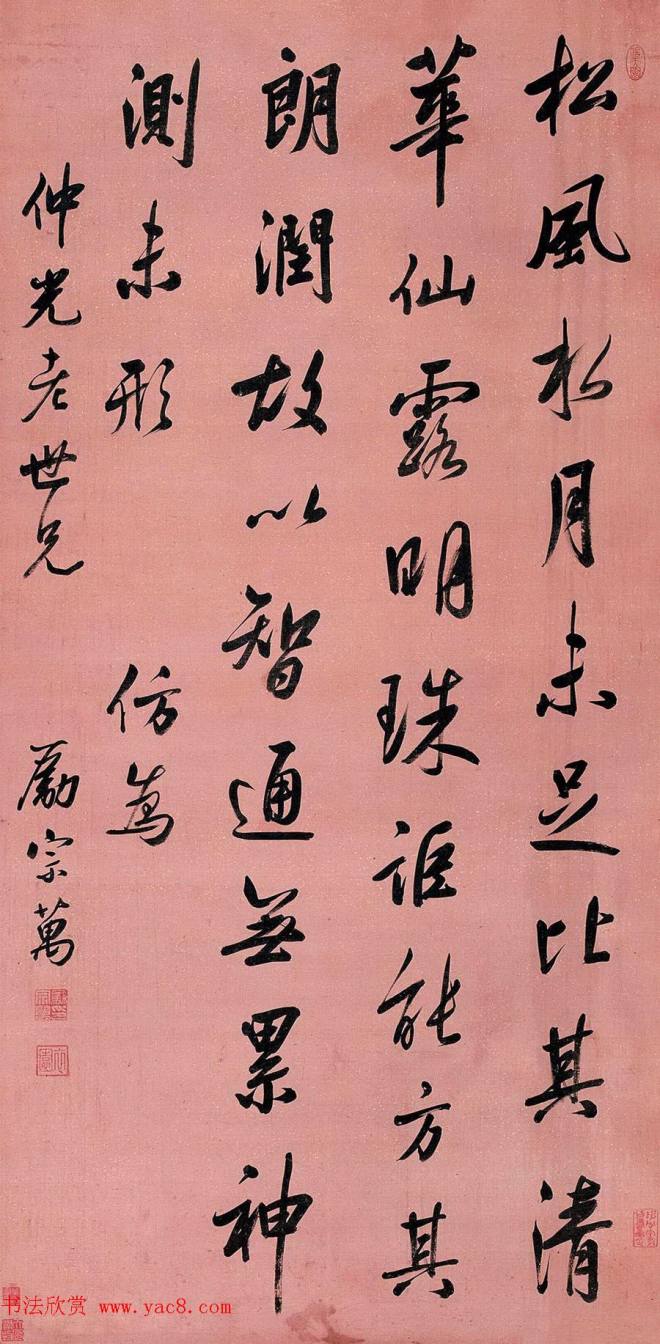 松風水月未足比其清
華仙露明珠詎能方其
朗潤故以智通無累神
測未形 仿為
仲光老世兄 勵宗萬
书法欣赏 www.yac8.com